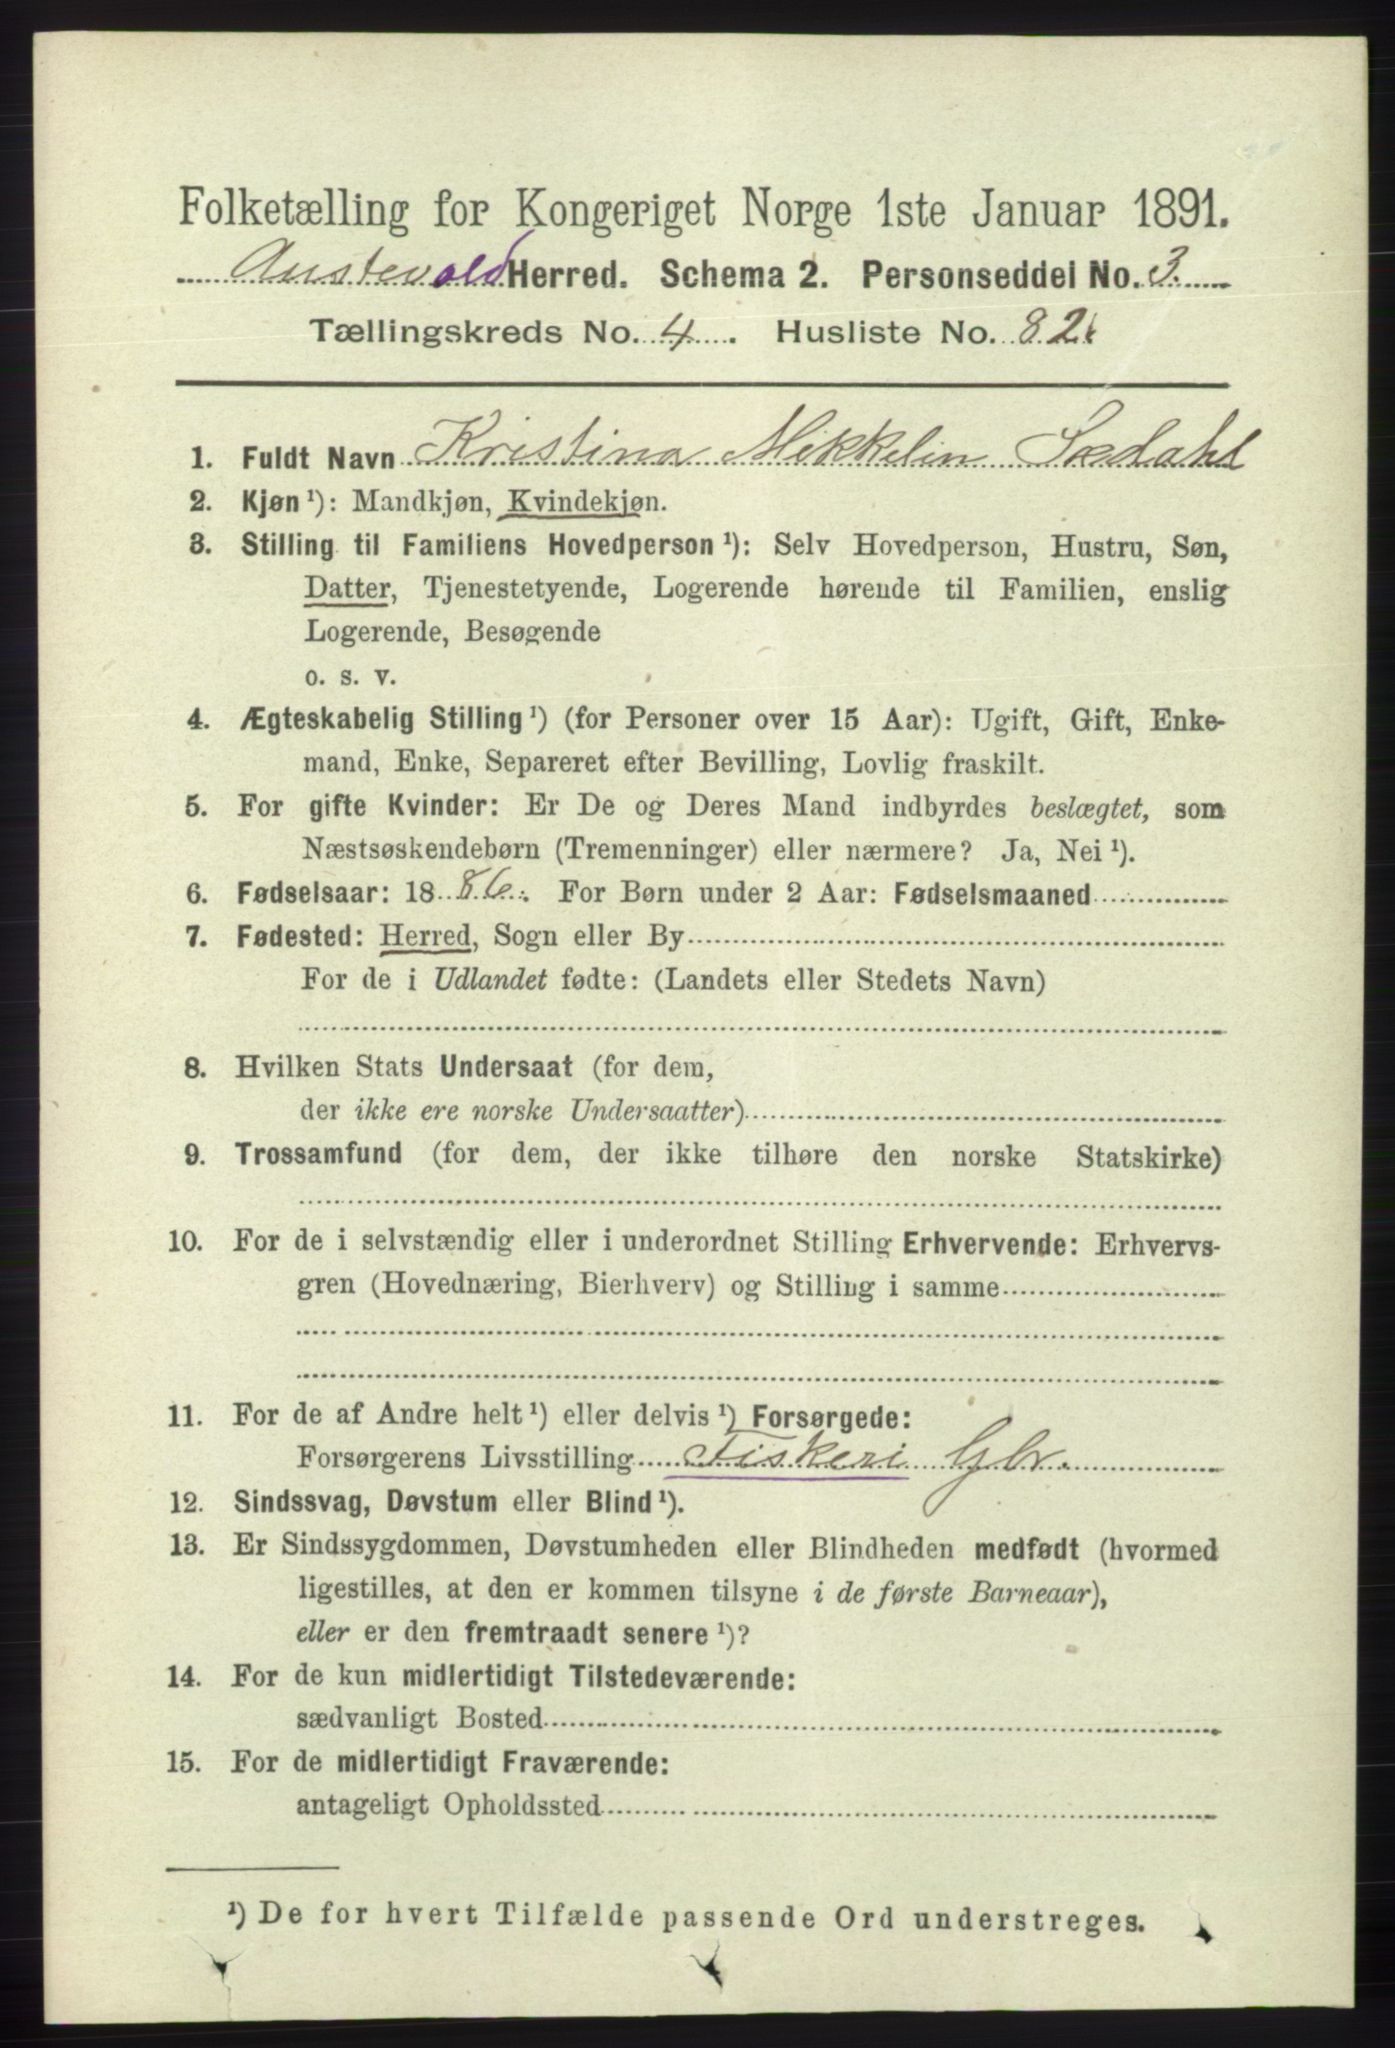 Folketælling for Kongeriget Norge 1ste Januar 1891.
Austevold Herred. Schema 2. Personseddel No. 3.
Tællingskreds No. 4. Husliste No. 82.
1. Fuldt Navn Kristina Mikkelin Sædahl
2. Kjøn ¹): Mandkjøn, Kvindekjøn.
3. Stilling til Familiens Hovedperson ¹): Selv Hovedperson, Hustru, Søn,
Datter, Tjenestetyende, Logerende hørende til Familien, enslig
Logerende, Besøgende
o. s. v.
4. Ægteskabelig Stilling ¹) (for Personer over 15 Aar): Ugift, Gift, Enke-
mand, Enke, Separeret efter Bevilling, Lovlig fraskilt.
5. For gifte Kvinder: Er De og Deres Mand indbyrdes beslægtet, som
Næstsøskendebørn (Tremenninger) eller nærmere? Ja, Nei ¹).
6. Fødselsaar: 1886. For Børn under 2 Aar: Fødselsmaaned
7. Fødested: Herred, Sogn eller By
For de i Udlandet fødte: (Landets eller Stedets Navn)
8. Hvilken Stats Undersaat (for dem,
der ikke ere norske Undersaatter)
9. Trossamfund (for dem, der ikke tilhøre den norske Statskirke)
10. For de i selvstændig eller i underordnet Stilling Erhvervende: Erhvervs-
gren (Hovednæring, Bierhverv) og Stilling i samme
11. For de af Andre helt ¹) eller delvis ¹) Forsørgede:
Forsørgerens Livsstilling Fiskeri Gbr.
12. Sindssvag, Døvstum eller Blind ¹).
13. Er Sindssygdommen, Døvstumheden eller Blindheden medfødt (hvormed
ligestilles, at den er kommen tilsyne i de første Barneaar),
eller er den fremtraadt senere ¹)?
14. For de kun midlertidigt Tilstedeværende:
sædvanligt Bosted
15. For de midlertidigt Fraværende:
antageligt Opholdssted
¹) De for hvert Tilfælde passende Ord understreges.